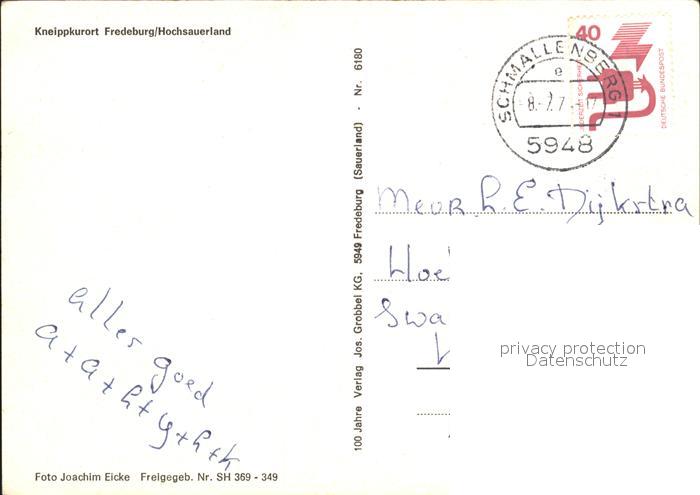 Kneippkurort Fredeburg/Hochsauerland
alles goed
a+a+h+y+h+k
Foto Joachim Eicke Freigegeb. Nr. SH 369 - 349
100 Jahre Verlag Jos. Grobbel KG, 5949 Fredeburg (Sauerland) - Nr. 6180
SCHMALLENBERG 1
e
5948
40
JEDERZEIT SICHERHEIT
DEUTSCHE BUNDESPOST
Mevr. h. E. Dijkstra
Hoe
Swa
privacy protection
Datenschutz